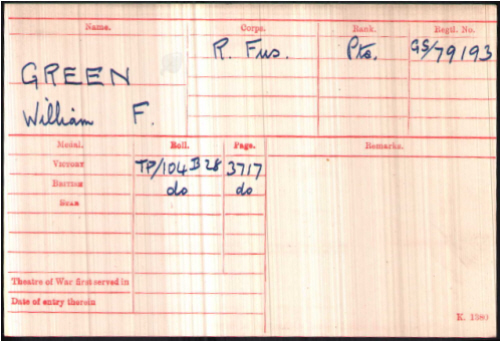 Name. Corps. Rank. Regtl. No.
R. Fus. Pte. GS/79193
GREEN
William F.
Medal. Roll. Page. Remarks.
Victory TP/104 B 28 3717
British do do
Star
Theatre of War first served in
Date of entry therein
K. 1380